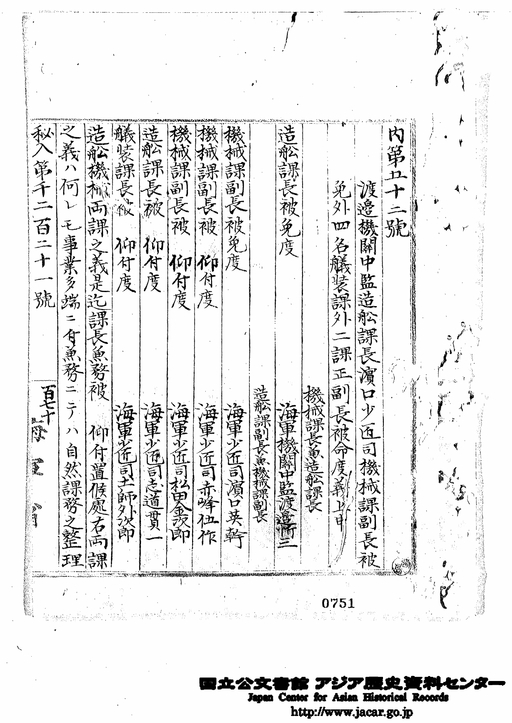 内第五十二號
渡邉機關中監造舩課長濱口少匠司機械課副長被
免外四名艤装課外二課正副長被命度義上申
機械課長兼造舩課長
造舩課長被免度 海軍機關中監渡邉忻三
造舩課副長兼機械課副長
機械課副長被免度 海軍少匠司濱口英幹
機械課副長被 仰付度 海軍少匠司赤峰伍作
機械課副長被 仰付度 海軍少匠司松田金次郎
造舩課長被 仰付度 海軍少匠司志道貫一
艤装課長被 仰付度 海軍少匠司土師外次郎
造舩機械両課之義是迄課長兼務被 仰付置候處右両課
之義ハ何レモ事業多端ニ有兼務ニテハ自然課務之整理
秘入第千二百二十一號 百七十 海軍省
0751
国立公文書館 アジア歴史資料センター
Japan Center for Asian Historical Records
http://www.jacar.go.jp